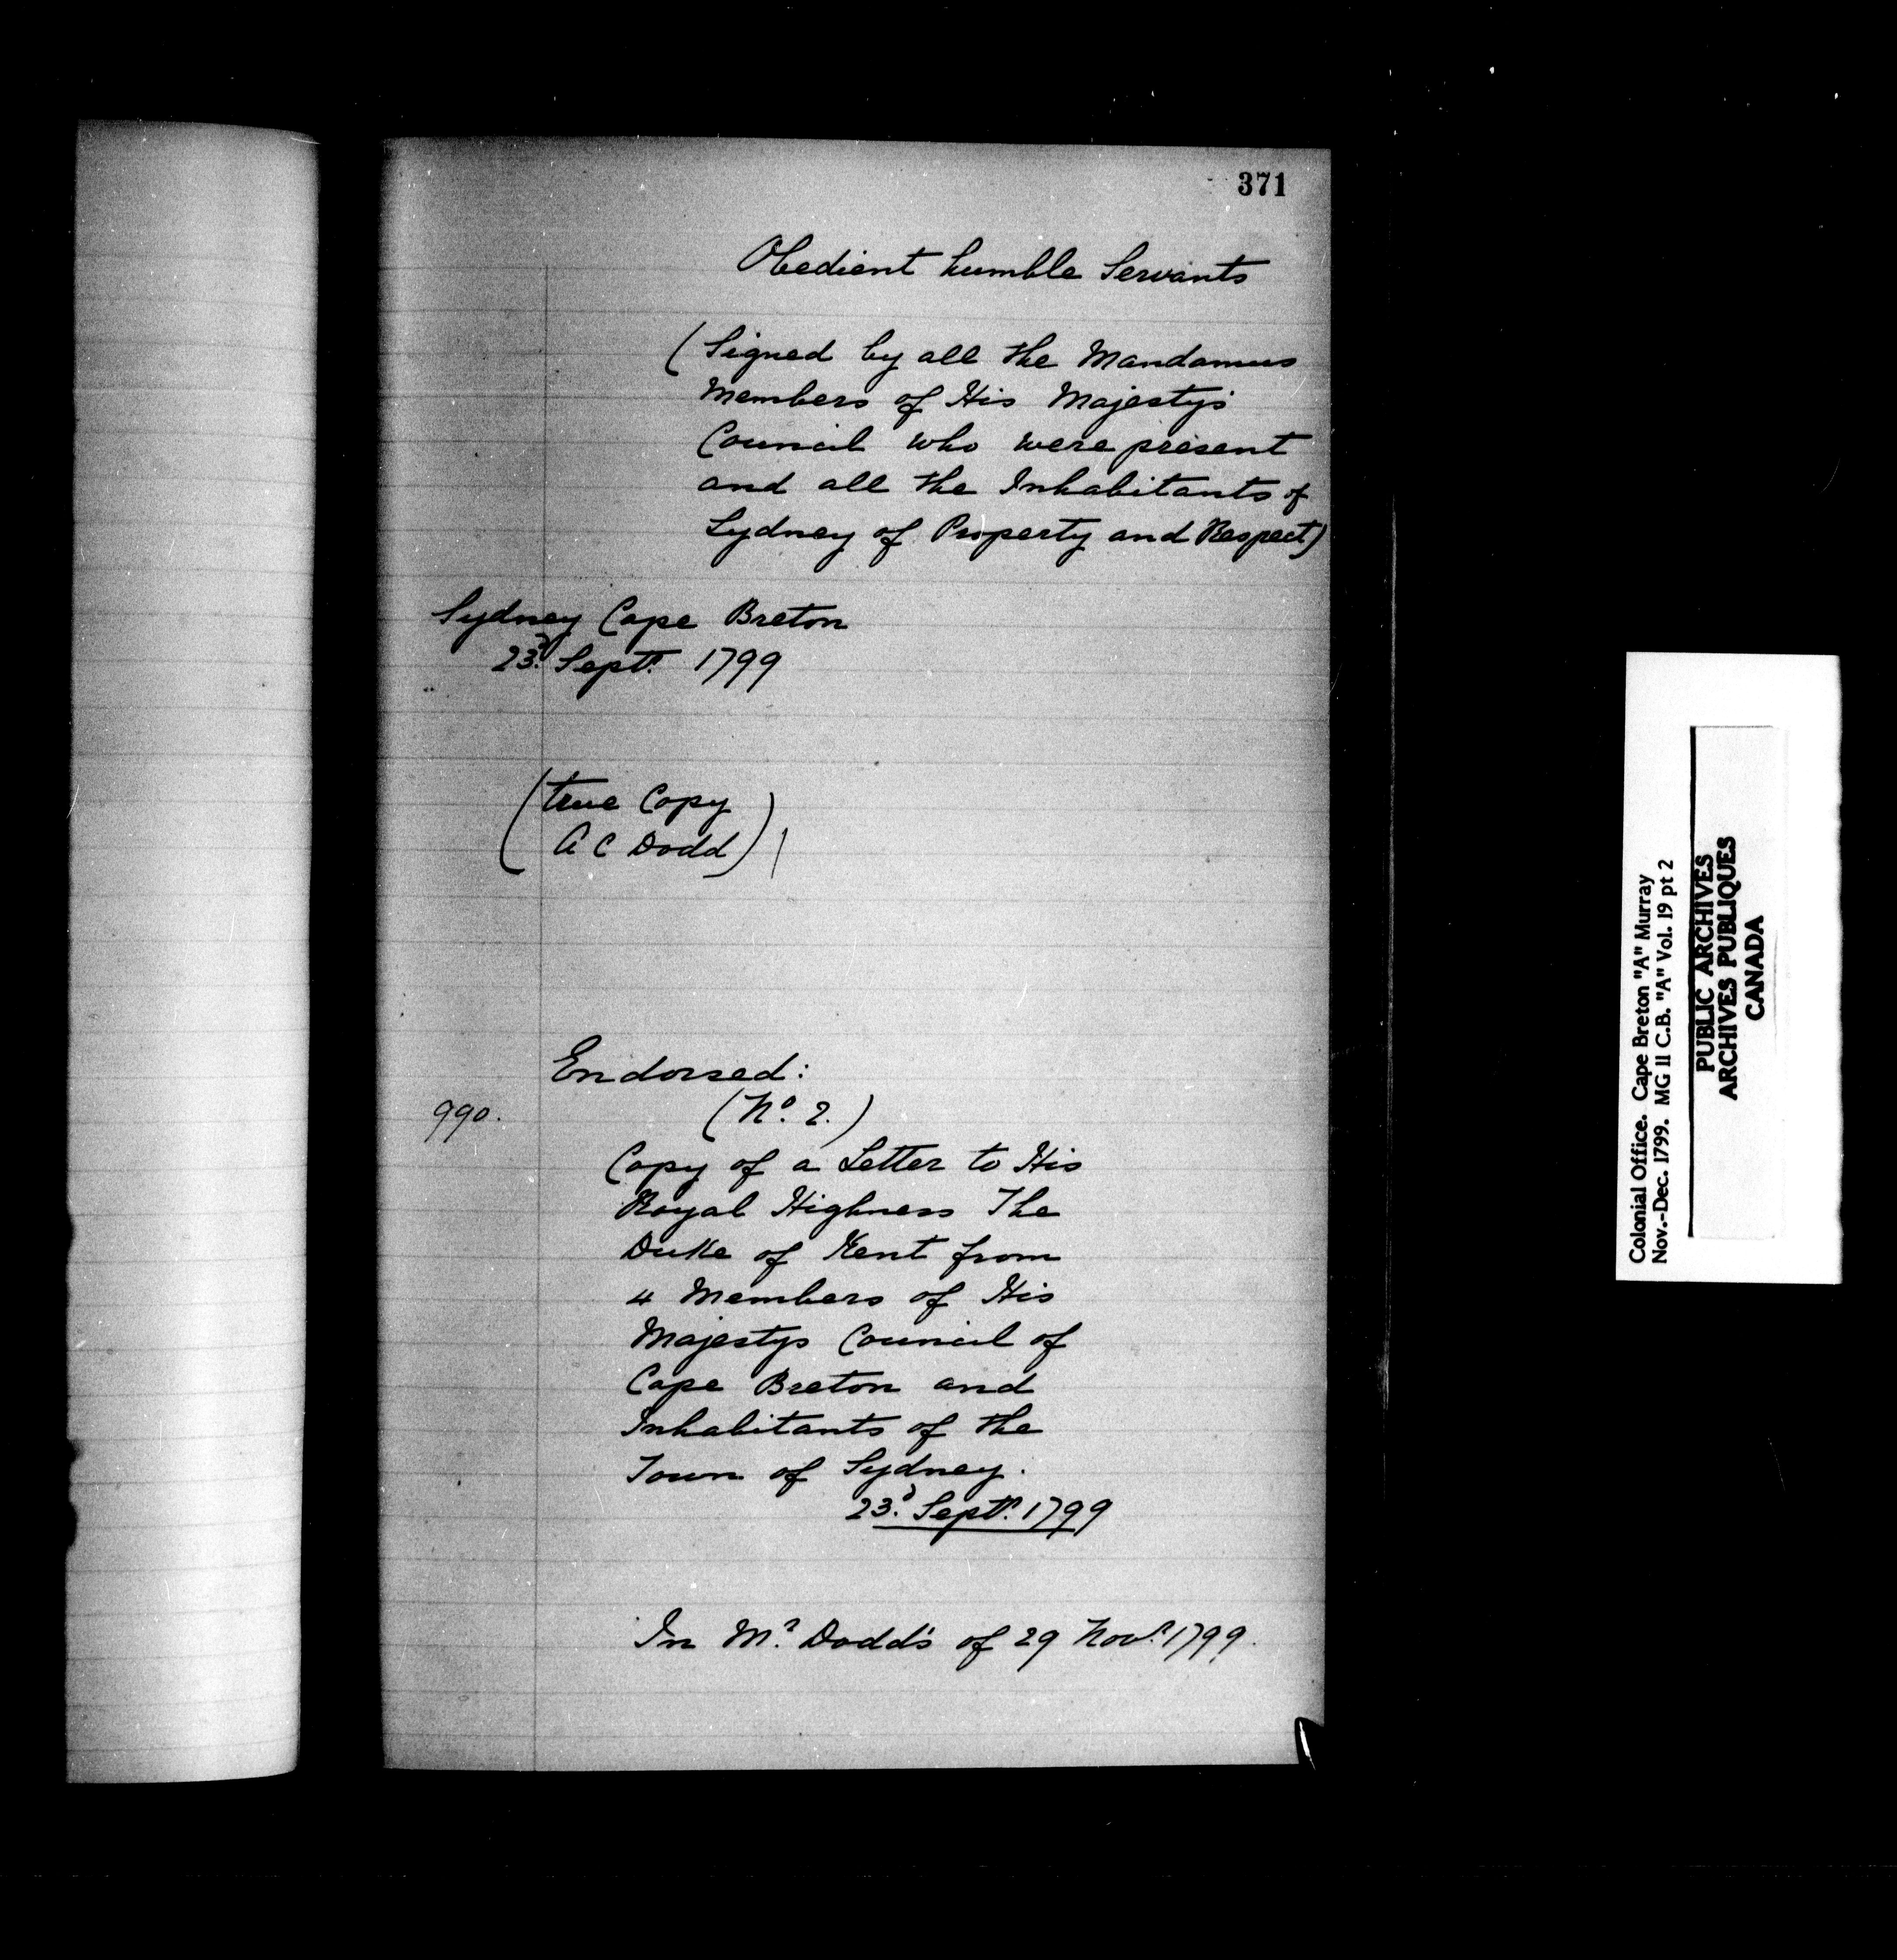 371
Obedient humble Servants
(Signed by all the Mandamus
Members of His Majestys
Council who were present
and all the Inhabitants of
Sydney of Property and Respect)
Sydney Cape Breton
23d. Septr. 1799
(true Copy
A C Dodd)
Endorsed:
990.
(No. 2.)
Copy of a Letter to His
Royal Highness The
Duke of Kent from
4 Members of His
Majestys Council of
Cape Breton and
Inhabitants of the
Town of Sydney.
23d. Septr. 1799
In Mr. Dodd's of 29 Novr. 1799.
Colonial Office. Cape Breton "A" Murray
Nov.-Dec. 1799. MG 11 C.B. "A" Vol. 19 pt 2
PUBLIC ARCHIVES
ARCHIVES PUBLIQUES
CANADA